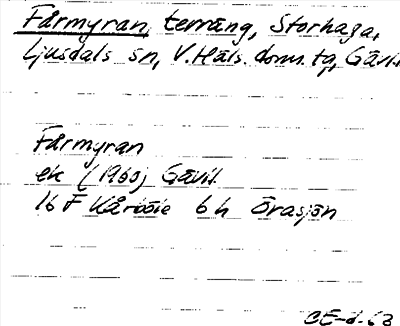 Fårmyran, terräng, Storhaga,
Ljusdals sn, V. Häls. doms. tg, Gävl.
Fårmyran
ek (1960) Gävl.
16 F Kårböle 6 h Örasjön
CE-d-63